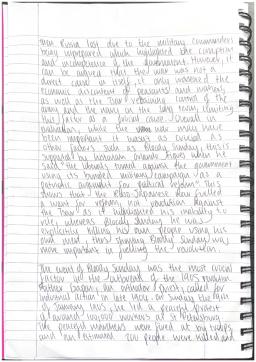 then Russia lost due to the military commanders
being unprepared which highlighted the corruption
and incompetence of the government. However, it
can be argued that the war was not a
direct cause in itself, it only worsened the
economic discontent of peasants and workers,
as well as the Tsar retaining control of the
army and the navy in the end, really limiting
this factor as a crucial cause. Overall in
evaluation, while the war may have
been important it was as crucial as
other factors such as Bloody Sunday, this is
supported by historian Orlando Figes when he
said "the liberals turned against the government
using its bungled military campaign as a
patriotic argument for political reform." This
shows that the Russo Japanese War fuelled
a want for reform, not revolution against
the Tsar as it highlighted his inability to
rule, whereas Bloody Sunday he was
explicitly killing his own people using his
own army, thus showing Bloody Sunday was
more important in fuelling the revolution.
The event of Bloody Sunday was the most crucial
factor in the outbreak of the 1905 revolution.
Father Gapon, an orthodox priest, called for
industrial action in late 1904. On Sunday the 9th
of January 1905, he led a peaceful protest
of around 150,000 workers at St Petersburg.
The peaceful marchers were fired at by troops,
and an estimated 200 people were killed and